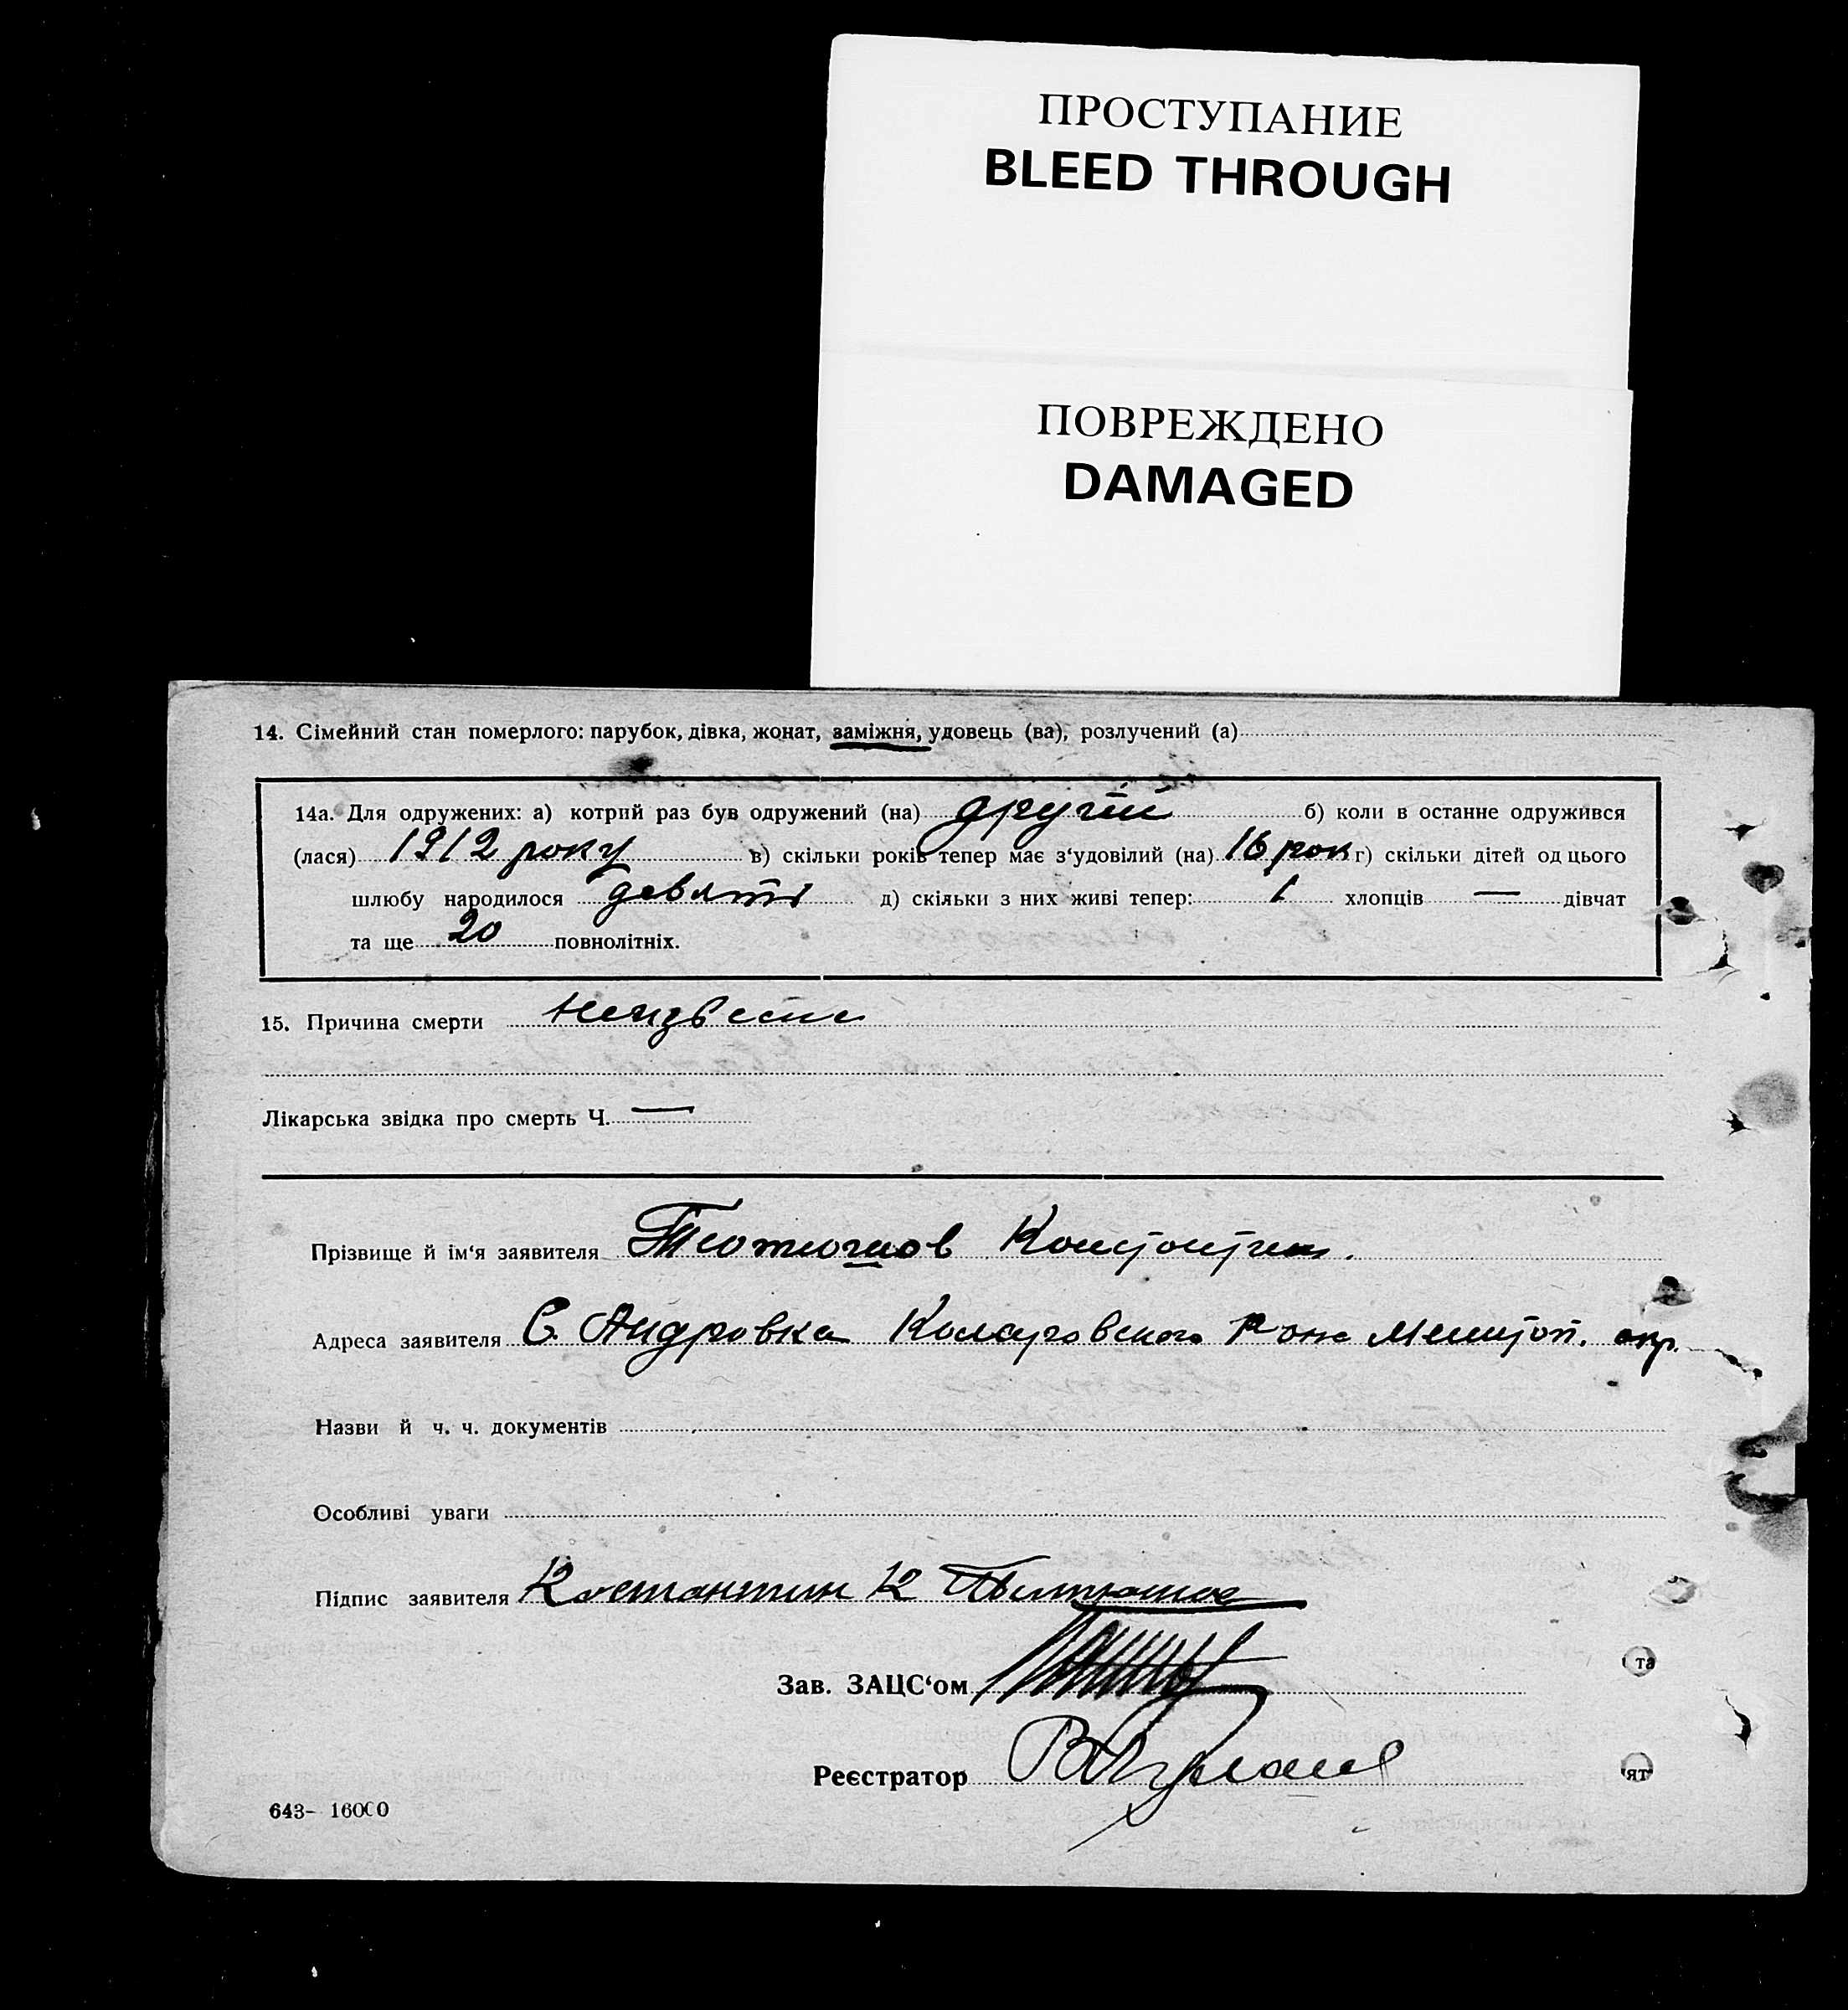 ПРОСТУПАНИЕ
BLEED THROUGH
ПОВРЕЖДЕНО
DAMAGED
14. Сімейний стан померлого: парубок, дівка, жонат, заміжня, удовець (ва), розлучений (а)
14а. Для одружених: а) котрий раз був одружений (на) другій б) коли в останне одружився
(лася) 1912 року в) скільки років тепер має з‘удовілий (на) 16 рок г) скільки дітей од цього
шлюбу народилося девять д) скільки з них живі тепер: 1 хлопців — дівчат
та ще 20 повнолітніх.
15. Причина смерти неизвестно
Лікарська звідка про смерть Ч. —
Прізвище й ім‘я заявителя Константин.
Адреса заявителя С. Андровка Коларовского р она Мелитоп. окр.
Назви й ч. ч. документів
Особливі уваги
Підпис заявителя Костантин К
Зав. ЗАЦС‘ом
та
Реєстратор
ят
643- 16000